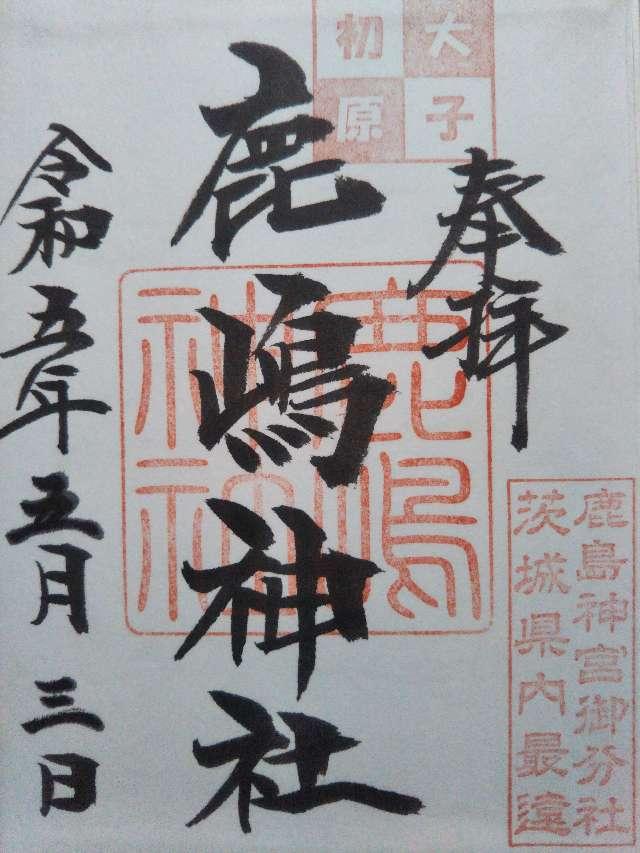 大子
初原
奉拝
鹿嶋神社
鹿嶋
神社
令和五年五月三日
鹿島神宮御分社
茨城県内最遠